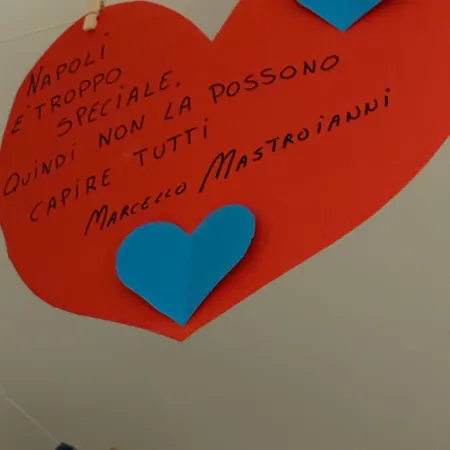 NAPOLI
E' TROPPO
SPECIALE.
QUINDI NON LA POSSONO
CAPIRE TUTTI
MARCELLO MASTROIANNI